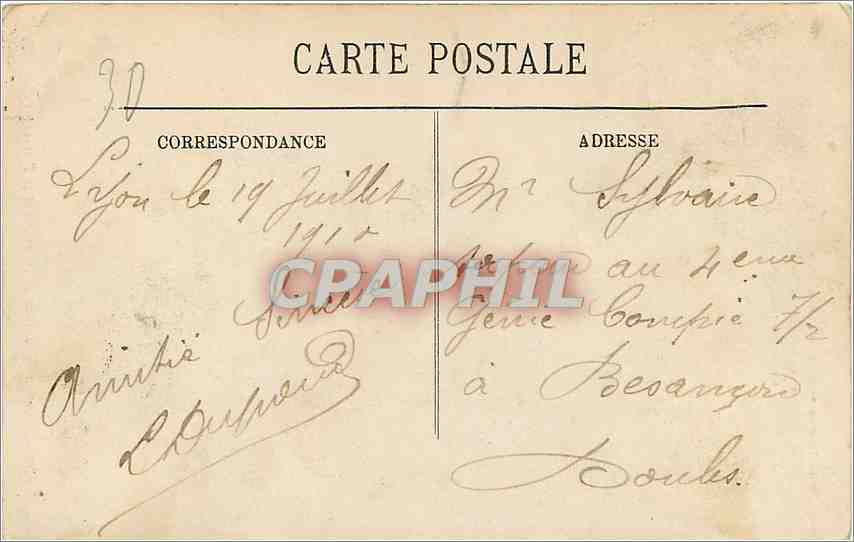 CARTE POSTALE
30
CORRESPONDANCE
Lyon le 19 Juillet
1910
Amitié
L Dupond
ADRESSE
Mr Sylvain
au 4eme
Genie Compie 7/2
à Besançon
Doubs.
CPAPHIL